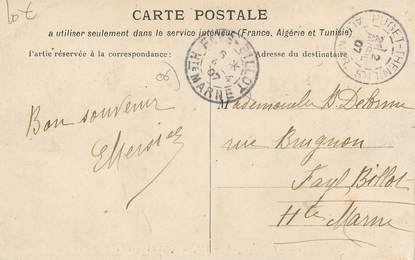 CARTE POSTALE
a utiliser seulement dans le service intérieur (France, Algérie et Tunisie)
Partie réservée à la correspondance:
Adresse du destinataire
FAYL-BILLOT
07
HTE MARNE
PUGET-THENIERS
07
Bon souvenir
Mademoiselle D Delorme
rue Brugnon
Fayl Billot
Hte Marne